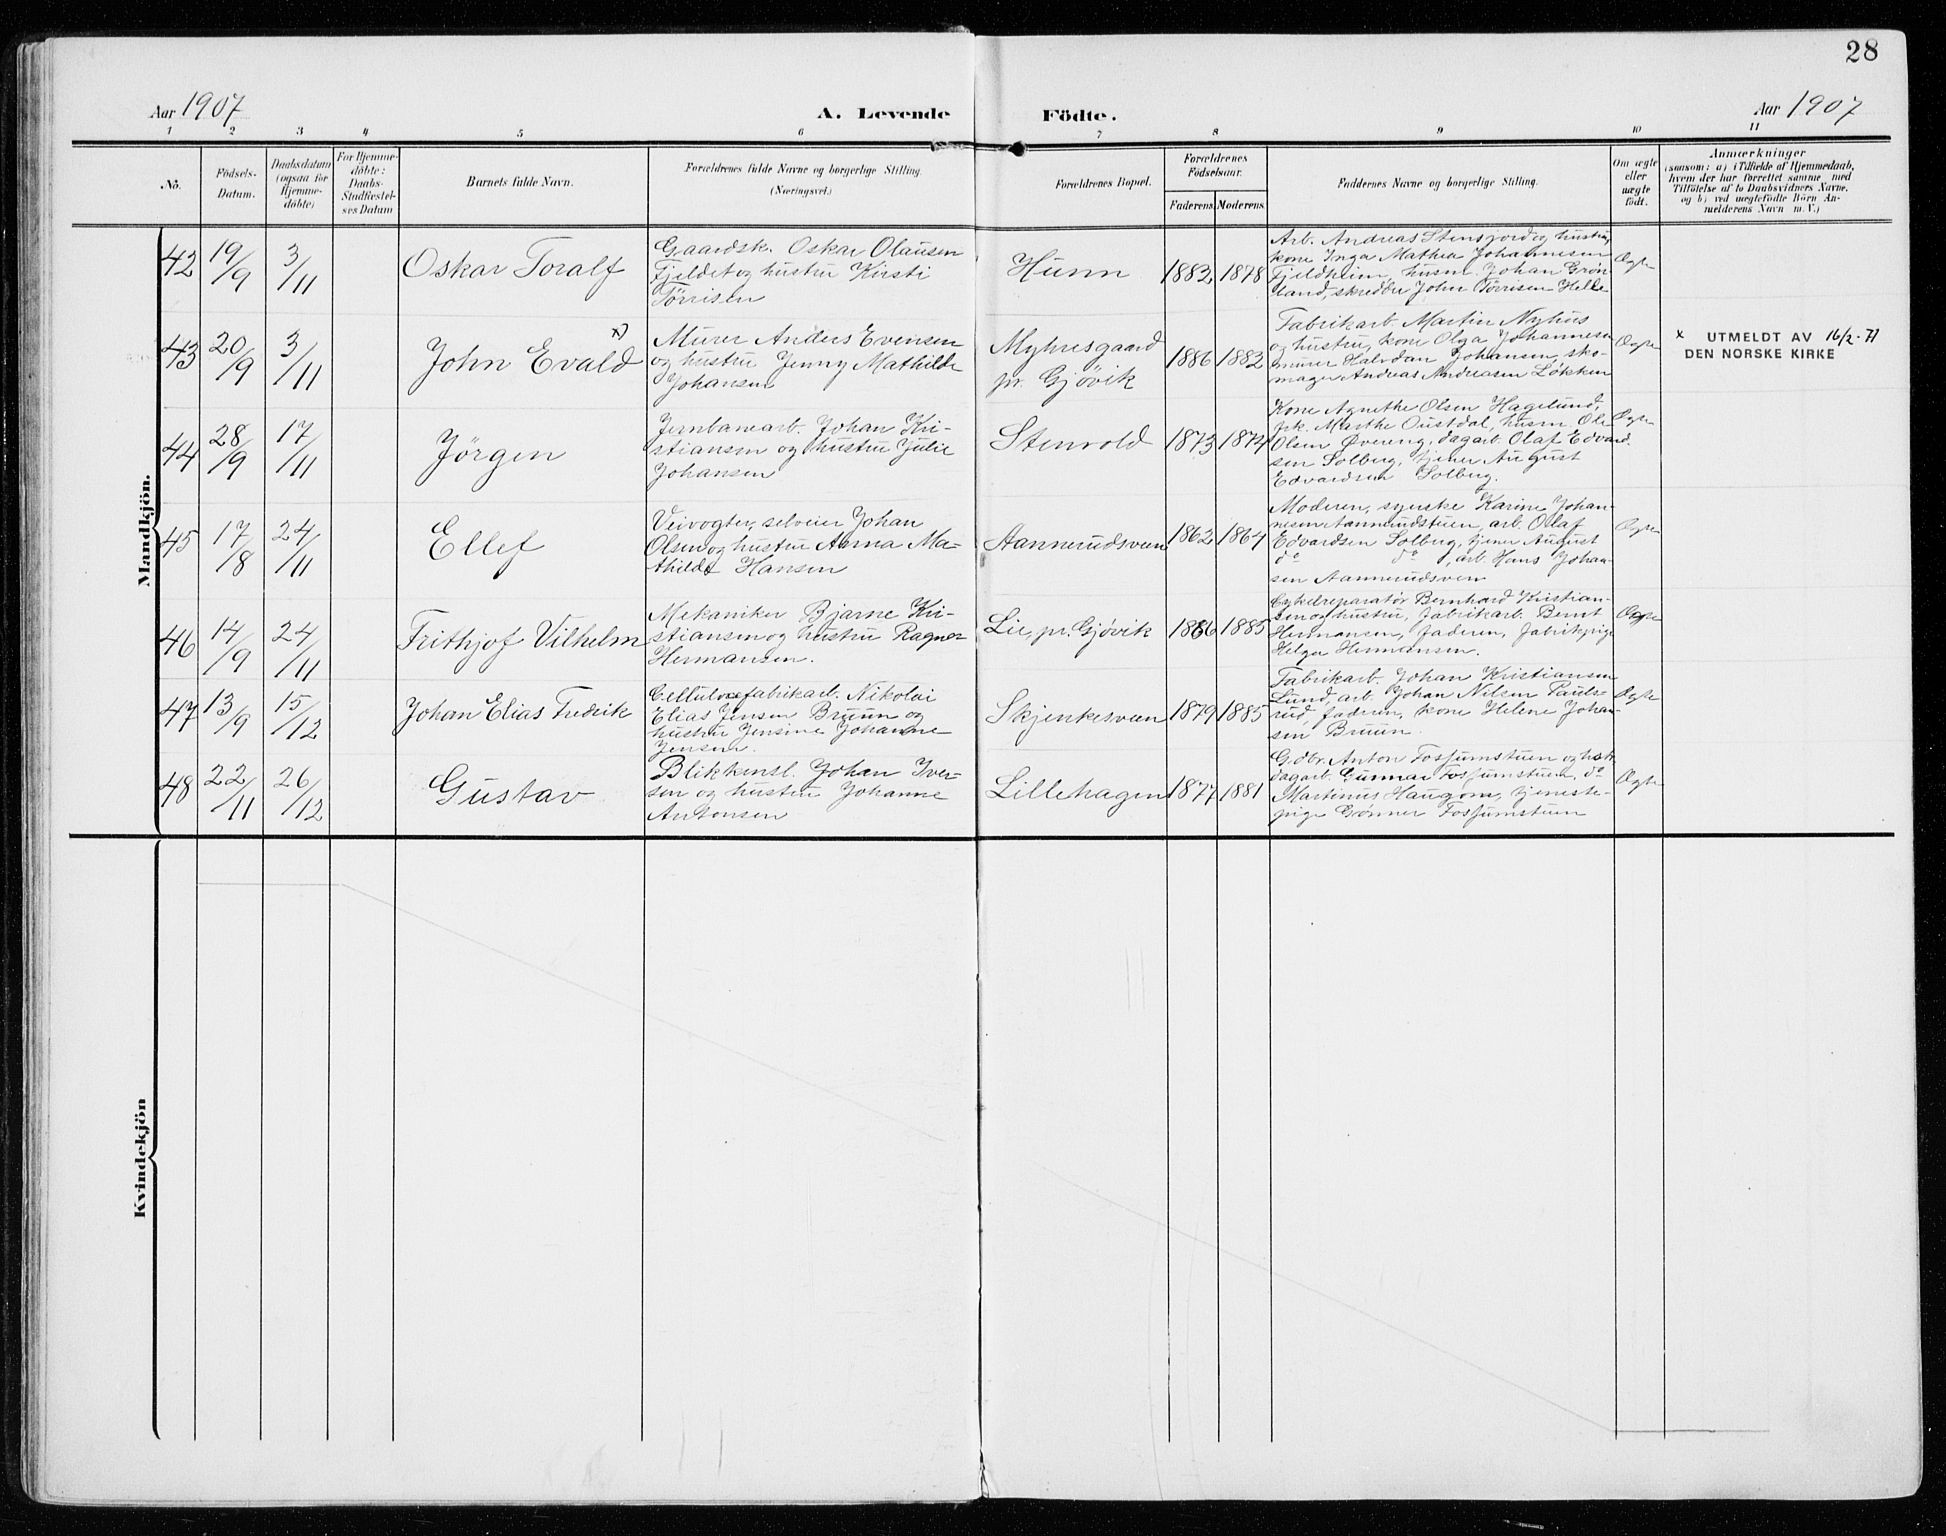 28
Aar 1907
A. Levende
Födte.
Aar 1907
1 2 3 4 5 6 7 8 9 10 11
No.
Födsels-
Datum.
Daabsdatum
(ogsaa for
Hjemme-
döbte)
For Hjemme-
döbte:
Daabs-
Stadfæstel-
ses Datum
Barnets fulde Navn.
Forældrenes fulde Navne og borgerlige Stilling.
(Næringsvei.)
Forældrenes Bopæl.
Forældrenes
Födselsaar.
Faderens. Moderens.
Faddernes Navne og borgerlige Stilling.
Om ægte
eller
uægte
födt.
Anmærkninger
(saasom: a) i Tilfælde af Hjemmedaab,
hvem der har forrettet samme med
Tilföielse af to Daabsvidners Navne.
og b) ved uægtefödte Börn An-
melderens Navn m. V.)
Mandkjön.
42
19/9
3/11
Oskar Toralf
Gaardsk. Oskar Olausen
Fjeldet og hustru Kirsti
Törrisen
Hunn
1883
1878
Arb. Andreas Stensjord og hustru,
kone Inga Mathea Johannesen
Fjeldheim, husm. Johan Grön-
land, skredder John Törrisen Helle
Ægte
43
20/9
3/11
John Evald x)
Murer Anders Evensen
og hustru Jenny Mathilde
Johansen
Myhresgaard
pr. Gjøvik
1886
1882
Fabrikarb. Martin Nyhus
og hustru, kone Olga Johannesen
murer Halvdan Johansen, sko-
mager Andreas Andreasen Løkken
Ægte
x UTMELDT AV 16/2-71
DEN NORSKE KIRKE
44
28/9
17/11
Jörgen
Jernbanearb. Johan Kri-
stiansen og hustru Julie
Johansen
Stenvold
1873
1874
Kone Agnethe Olsen Hagelund,
pk. Marthe Oustdal, husm. Ole
Olsen Øvereng, dagarb. Olaf Edvard-
sen Solberg, tjener August
Edvardsen Solberg.
Ægte
45
17/8
24/11
Ellef
Veivogter, selveier Johan
Olsen og hustru Anna Ma-
thilde Hansen
Aannerudsveen
1862
1864
Moderen, syerske Karine Johan-
nesen Aannerudstuen, arb. Olaf
Edvardsen Solberg, tjener August
do do, arb. Hans Johan-
sen Aannerudsveen
Ægte
46
14/9
24/11
Frithjof Vilhelm
Mekaniker Bjarne Kri-
stiansen og hustru Ragna
Hermansen.
Lie, pr. Gjøvik
1886
1885
Cykelreparatør Bernhard Kristian-
sen og hustru, fabrikarb. Bernt
Hermansen, faderen, fabrikpige
Helga Hermansen.
Ægte
47
13/9
15/12
Johan Elias Fredrik
Cellulosefabrikarb. Nikolai
Elias Jensen Bruun og
hustru Jensine Johanne
Jensen.
Skjenkesveen
1879
1885
Fabrikarb. Johan Kristiansen
Lund, arb. Johan Nilsen Pauls-
rud, faderen, kone Helene Johan-
sen Bruun.
Ægte
48
22/11
26/12
Gustav
Blikkensl. Johan Iver-
sen og hustru Johanne
Antonsen
Lillehagen
1877
1881
Gdbr. Anton Fossumstuen og hustr.
dagarb. Gunnar Fossumstuen, do
Martinus Haugom, tjeneste-
pige Gønner Fossumstuen
Ægte
Kvindekjön